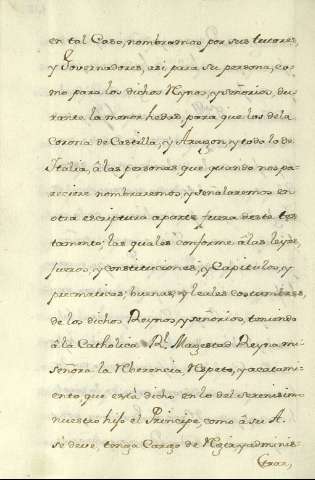 en tal Caso, nombramos por sus tutores,
y Governadores, asi para su persona, co-
mo para los dichos Rynos, y señorios, du-
rante la menor hedad, para que los de la
Corona de Castilla, y Aragon, y todo lo de
Italia, â las personas que quando nos pa-
reciere nombraremos, y señalaremos en
otra escriptura aparte fuera deste tes-
tamento; las quales conforme â las leyes,
fueros, y constituciones, y Capitulos, y
pregmaticas, buenas, y leales costumbres,
de los dichos Reynos, y señorios, teniendo
â la Catholica Rl. Magestad Reyna mi
señora la Rberencia Rspeto, y acatami-
ento que està dicho en lo del serenisim
nuestro hijo el Principe, como â su A.
se deve, tenga Cargo de Rgir, y adminis-
trar,